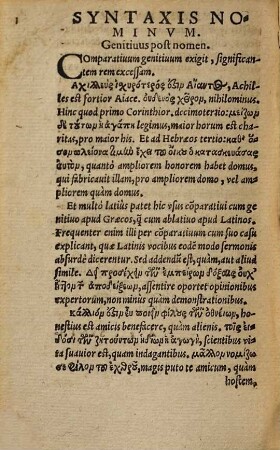 SYNTAXIS NO-
MINVM.
Genitiuus post nomen.
Comparatiuum genitiuum exigit, significan-
tem rem excessam.
Ἀχιλλεὺς ἰχυρότερός ὅζιν Αἴαντος, Achil-
les est fortior Aiace. οὐδενὸς χεῖρον, nihilominus.
Hinc quod primo Corinthior. decimotertio: μείζων
δὲ τούτων ἡ ἀγάπη legimus, maior horum est cha-
ritas, pro maior his. Et ad Hebraeos tertio: καθ' ὅσον
πλείονα τιμὴν ἔχει τοῦ οἴκου ὁ κατασκευάσας
αυτὸν, quanto ampliorem honorem habet domus,
qui fabricauit illam, pro ampliorem domo, vel am-
pliorem quàm domus.
Et multò latiùs patet hic vsus cōparatiui cum ge-
nitiuo apud Graecos, q̄ cum ablatiuo apud Latinos.
Frequenter enim illi per cōparatiuum cum suo casu
explicant, quae Latinis vocibus eodē modo sermonis
absurdè dicerentur. Sed addendū est, quàm, aut aliud
simile. Δεῖ προσέχειν τῶν ἐμπείρων δόξαις οὐχ
ἧττον ἢ ἀποδείξεων, assentire oportet opinionibus
expertorum, non minùs quàm demonstrationibus.
κάλλιον ὅζιν εὖ ποιεῖν φίλους τῶν ὀθνείων, ho-
nestius est amicis benefacere, quàm alienis. τοῖς εἰ-
δόσι τῶν ζητούντων ἡδίων ἡ ἀγωγὴ, scientibus vi-
ta suauior est, quàm indagantibus. μᾶλλον νομίζω
σε φίλον τοῦ ἐχθροῦ, magis puto te amicum, quàm
hostem.